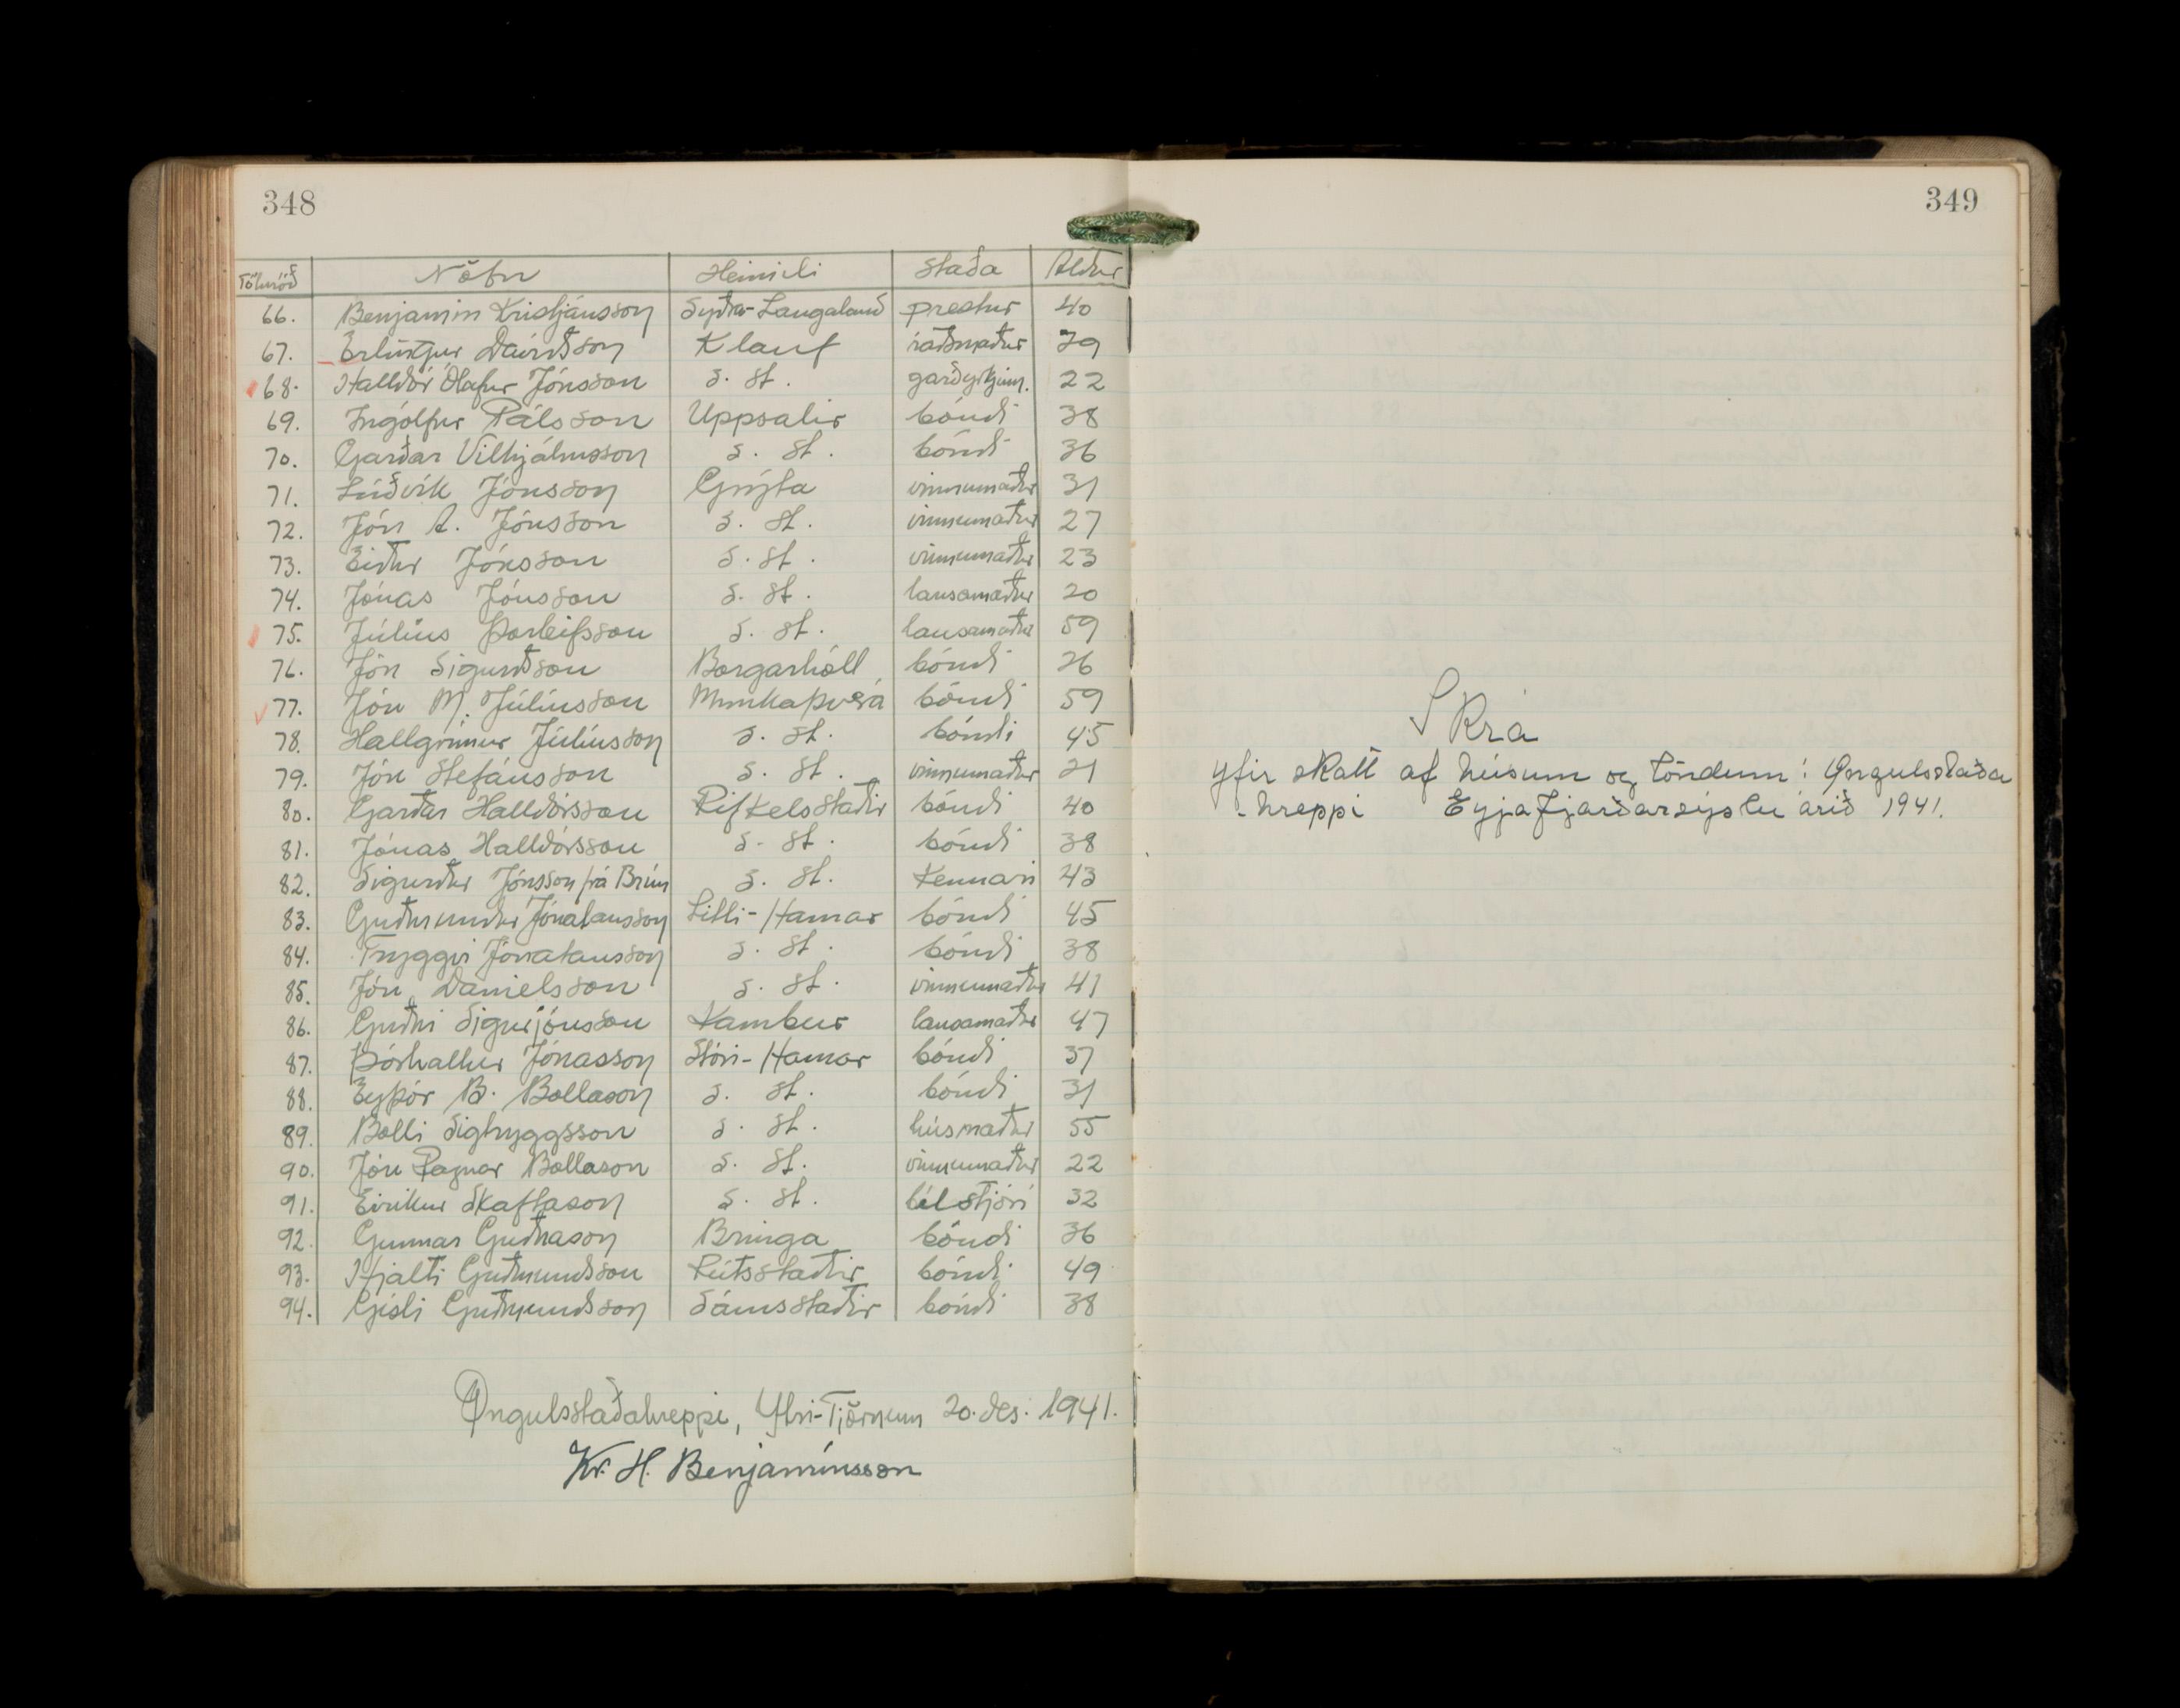 348
Töluröð Nöfn Heimili Staða Aldur
66. Benjamín Kristjánsson Syðra-Laugaland prestur 40
67. Erlingur Davíðsson Klauf ráðsmaður 29
68. Halldór Ólafur Jónsson s. st. garðyrkjum. 22
69. Ingólfur Pálsson Uppsalir bóndi 38
70. Garðar Vilhjálmsson s. st. bóndi 36
71. Lúðvík Jónsson Grýta vinnumaður 31
72. Jón A. Jónsson s. st. vinnumaður 27
73. Eiður Jónsson s. st. vinnumaður 23
74. Jónas Jónsson s. st. lausamaður 20
75. Júlíus Þorleifsson s. st. lausamaður 59
76. Jón Sigurðsson Borgarhóll bóndi 26
77. Jón M. Júlíusson Munkaþverá bóndi 59
78. Hallgrímur Júlíusson s. st. bóndi 45
79. Jón Stefánsson s. st. vinnumaður 21
80. Garðar Halldórsson Rifkelsstaðir bóndi 40
81. Jónas Halldórsson s. st. bóndi 38
82. Sigurður Jónsson frá Brún s. st. Kennari 43
83. Guðmundur Jónatansson Litli-Hamar bóndi 45
84. Tryggvi Jónatansson s. st. bóndi 38
85. Jón Daníelsson s. st. vinnumaður 41
86. Guðni Sigurjónsson Kambur lausamaður 47
87. Þórhallur Jónasson Stóri-Hamar bóndi 37
88. Eyþór B. Bollason s. st. bóndi 31
89. Bolli Sigtryggsson s. st. húsmaður 55
90. Jón Ragnar Bollason s. st. vinnumaður 22
91. Eiríkur Skaftason s. st. bílstjóri 32
92. Gunnar Guðnason Bringa bóndi 36
93. Hjalti Guðmundsson Rútsstaðir bóndi 49
94. Gísli Guðmundsson Sámsstaðir bóndi 38
Öngulsstaðahreppi, Ytri-Tjörnum 20. des. 1941.
Kr. H. Benjamínsson
349
Skrá
yfir skatt af húsum og löndum í Öngulsstaða
-hreppi Eyjafjarðarsýslu árið 1941.